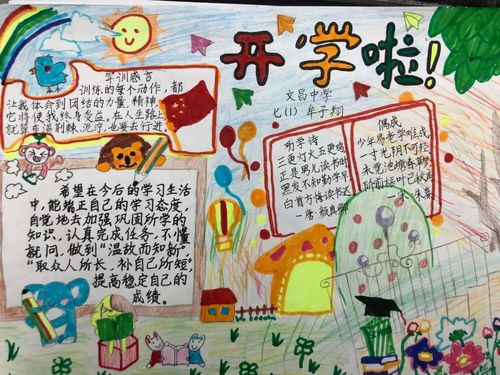 开学啦!
文昌中学
七(1) 牟子翔
军训感言
训练的每个动作,都
让我体会到团结的力量,精神,
它将使我终身受益。在人生路上
就算布满荆棘、泥泞,也要去行进
希望在今后的学习生活
中,能端正自己的学习态度,
自觉地去加强巩固所学的
知识,认真完成任务,不懂
就问,做到“温故而知新”,
“取众人所长,补自己所短”,
提高稳定自己的
成绩。
为学诗
三更灯火五更鸡
正是男儿读书时
黑发不知勤学早
白首方悔读书迟
-唐·颜真卿
偶成
少年易老学难成
一寸光阴不可轻
未觉池塘春草梦
阶前梧叶已秋声
-宋·朱熹